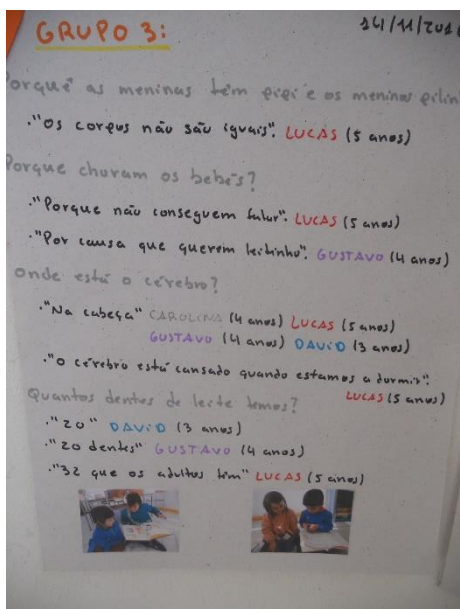 GRUPO 3:
14/11/201
Porquê as meninas têm pipi e os meninos pilin
."Os corpos não são iguais". LUCAS (5 anos)
Porque choram os bebés?
."Porque não conseguem falar". LUCAS (5 anos)
."Por causa que querem leitinho". GUSTAVO (4 anos)
Onde está o cérebro?
."Na cabeça" CAROLINA (4 anos) LUCAS (5 anos)
GUSTAVO (4 anos) DAVID (3 anos)
."O cérebro está cansado quando estamos a dormir".
LUCAS (5 anos)
Quantos dentes de leite temos?
."20" DAVID (3 anos)
."20 dentes" GUSTAVO (4 anos)
."32 que os adultos têm" LUCAS (5 anos)